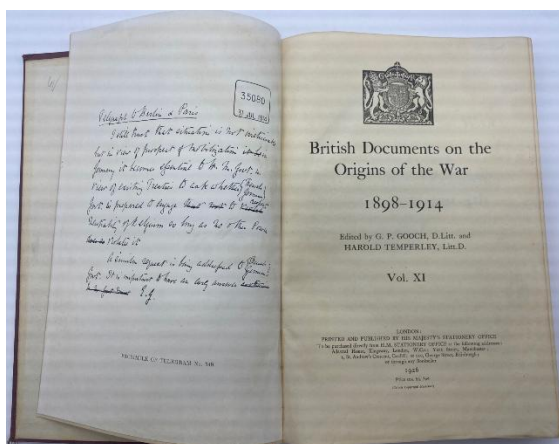 Telegraph to Berlin & Paris
35080
I still trust that situation is not
but in view of prospect of mobilization in
Germany it becomes essential to H. M. Govt. in
view of existing Treaties to ask whether
Govt. is prepared to engage to
neutrality of Belgium so long as no other Power
violates it.
A similar request is being addressed to
Govt. It is important to have an early answer
E.G.
FACSIMILE OF TELEGRAM No. 348
British Documents on the
Origins of the War
1898-1914
Edited by G. P. GOOCH, D.Litt. and
HAROLD TEMPERLEY, Litt.D.
Vol. XI
LONDON:
PRINTED AND PUBLISHED BY HIS MAJESTY'S STATIONERY OFFICE
To be purchased directly from H.M. STATIONERY OFFICE at the following addresses:
Adastral House, Kingsway, London, W.C.2; York Street, Manchester;
1, St. Andrew's Crescent, Cardiff; or 120, George Street, Edinburgh;
or through any Bookseller
1926